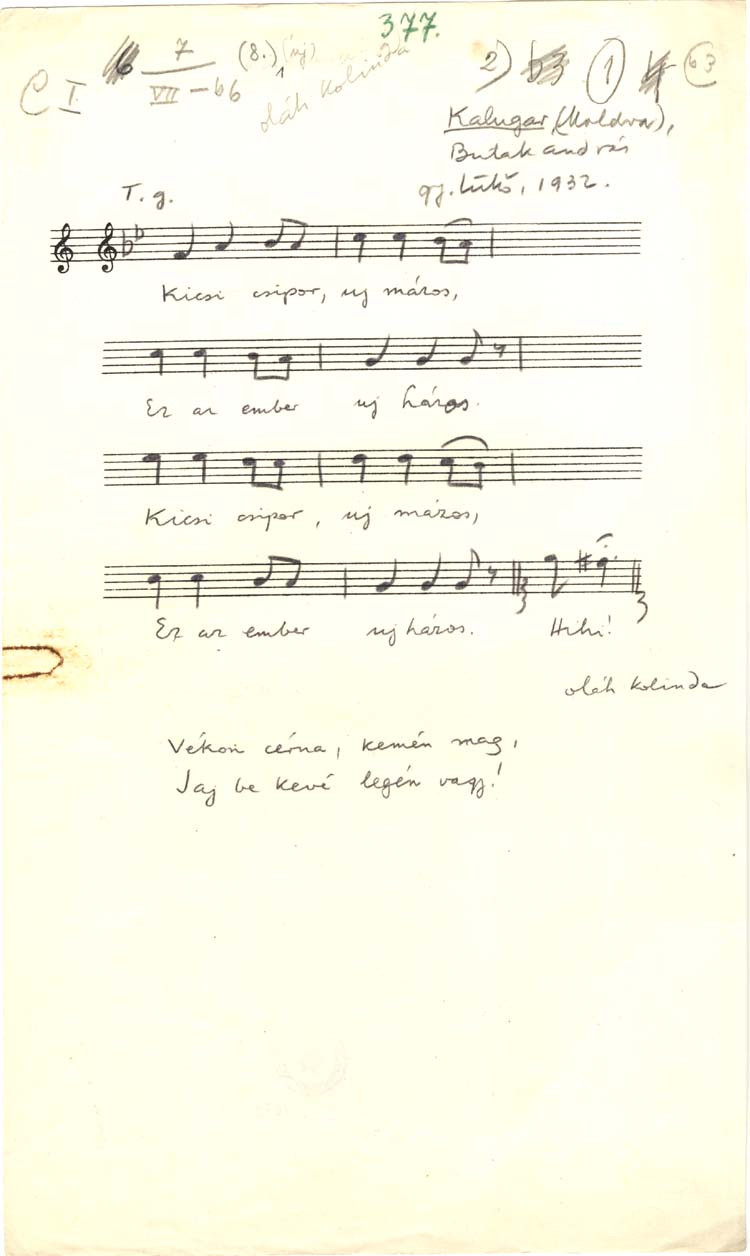 377.
C I. 7 (8.) (új) 2) 1 b3
VII – b6
oláh kolinda
Kalugar (Moldva),
Buták András
gy. Lükő, 1932.
T. g.
Kicsi csipor, uj máros,
Ez az ember uj háros.
Kicsi csipor, uj máros,
Ez az ember uj háros. Hihi!
oláh kolinda
Vékon cérna, kemén mag,
Jaj be kevé legén vagy!